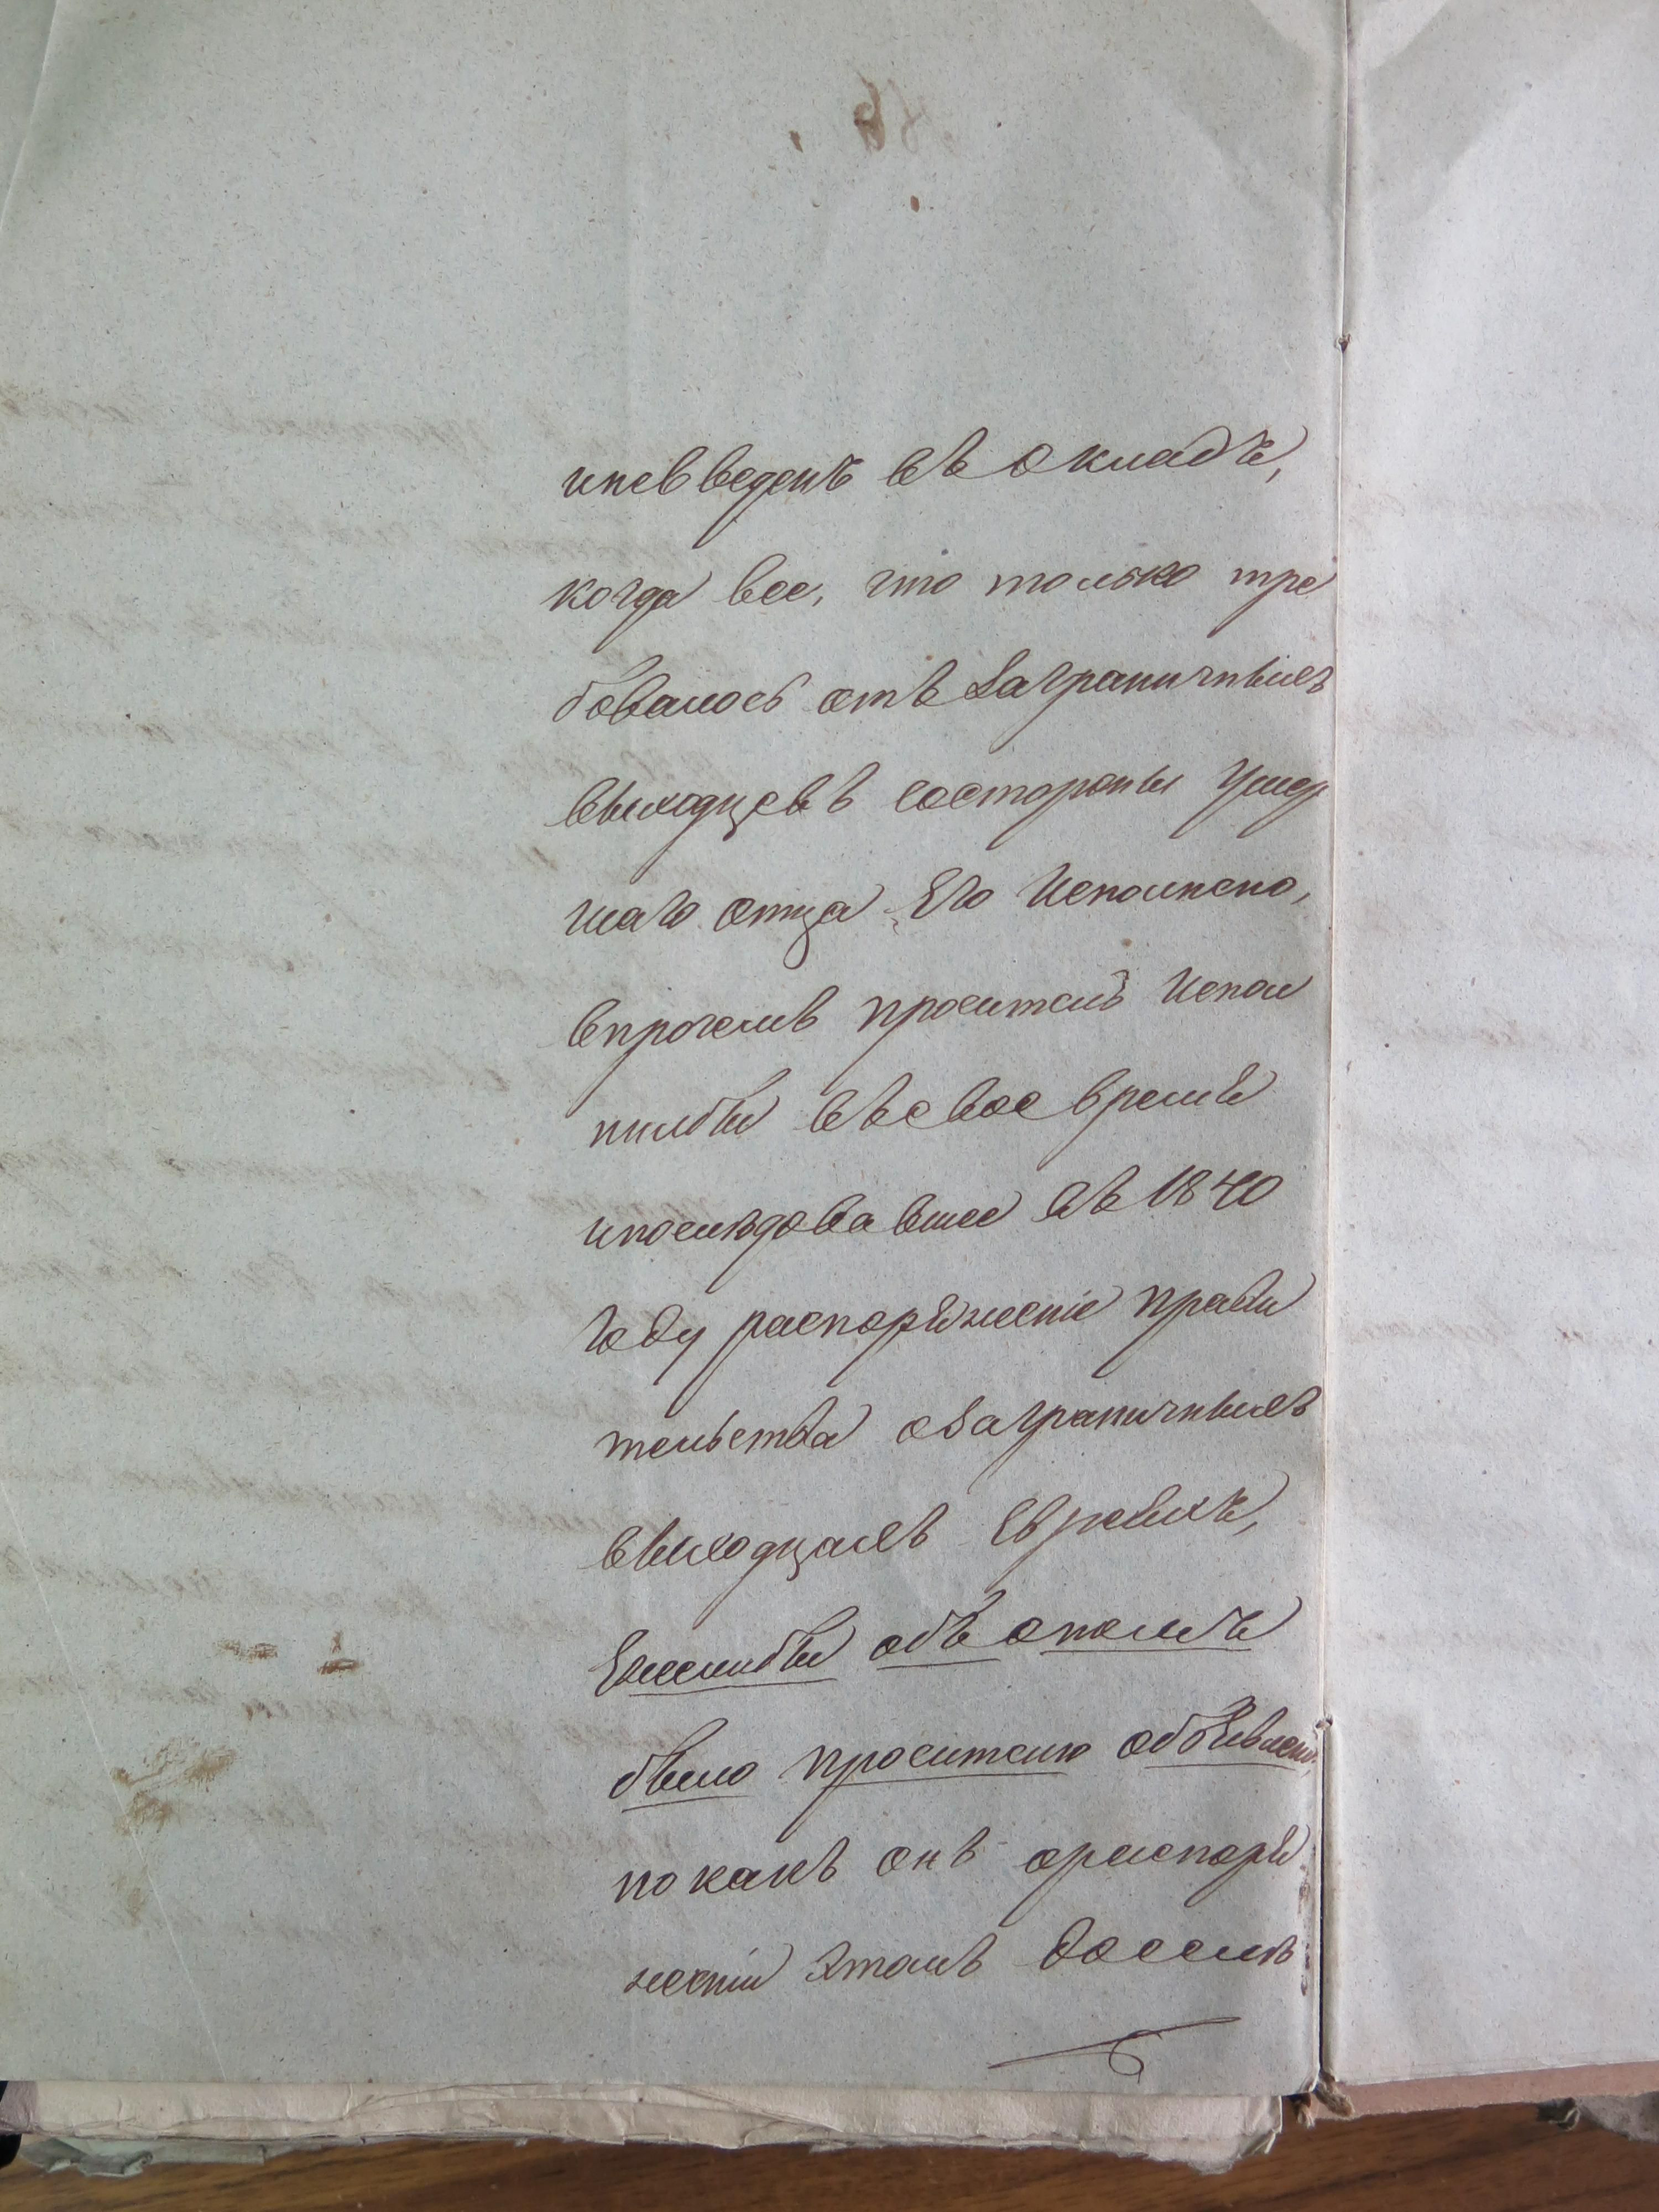 иневведенъ въ окладъ,
когда все, что только тре
бовалось отъ Заграничныхъ
выходцевъ состороны умер
шаго отца Его Исполнено,
впрочемъ проситель Испол
нилбы въсвое время
ипоследовавшее въ 1840
году распоряжение прави
тельства оЗаграничныхъ
выходцахъ Евреяхъ,
Ежелибы объ ономъ
было просителю объявлено,
но какъ онъ ораспоря
жении этомъ доселе